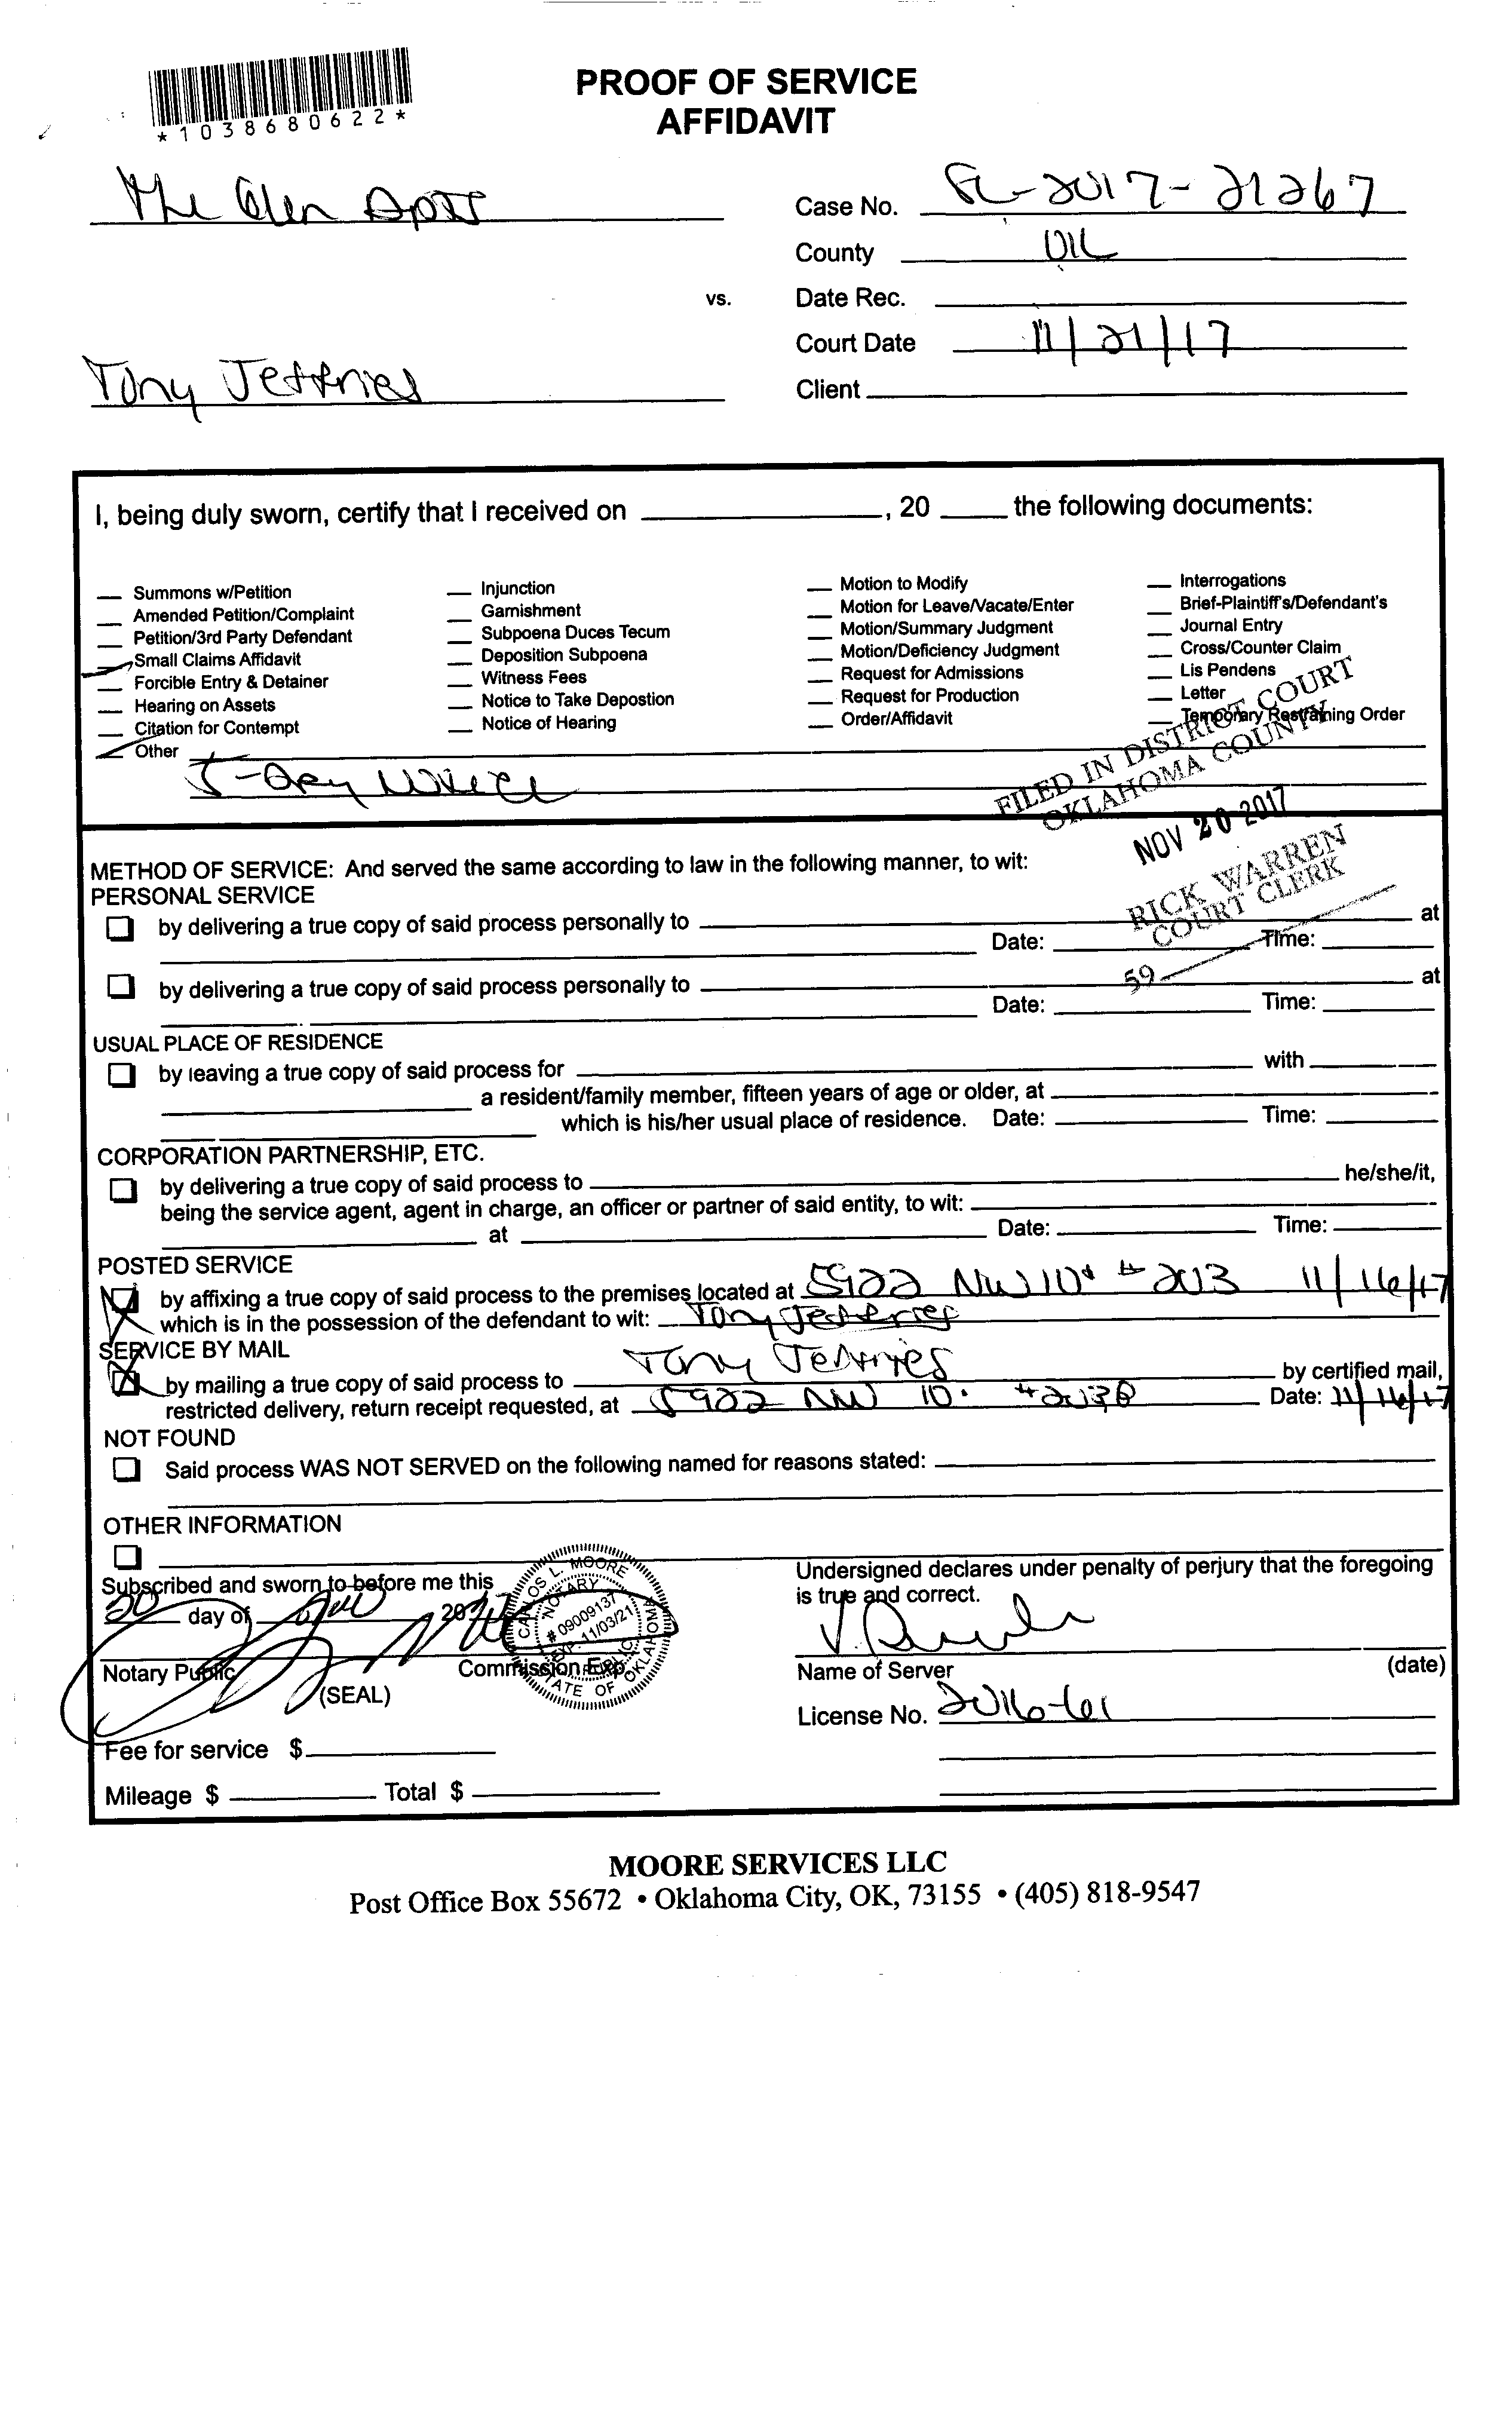 *1038680622*
PROOF OF SERVICE
AFFIDAVIT
The Glen Apts
Case No. SC-2017-21267
County OK
vs.
Date Rec.
Court Date 11/21/17
Tony Jeffries
Client
I, being duly sworn, certify that I received on ____, 20 ____ the following documents:
Summons w/Petition
Amended Petition/Complaint
Petition/3rd Party Defendant
Small Claims Affidavit
Forcible Entry & Detainer
Hearing on Assets
Citation for Contempt
Other
Injunction
Garnishment
Subpoena Duces Tecum
Deposition Subpoena
Witness Fees
Notice to Take Depostion
Notice of Hearing
Motion to Modify
Motion for Leave/Vacate/Enter
Motion/Summary Judgment
Motion/Deficiency Judgment
Request for Admissions
Request for Production
Order/Affidavit
Interrogations
Brief-Plaintiff's/Defendant's
Journal Entry
Cross/Counter Claim
Lis Pendens
Letter
Temporary Restraining Order
5-Day Notice
FILED IN DISTRICT COURT
OKLAHOMA COUNTY
NOV 20 2017
RICK WARREN
COURT CLERK
59
METHOD OF SERVICE: And served the same according to law in the following manner, to wit:
PERSONAL SERVICE
by delivering a true copy of said process personally to ____ at
Date: ____ Time: ____
by delivering a true copy of said process personally to ____ at
Date: ____ Time: ____
USUAL PLACE OF RESIDENCE
by leaving a true copy of said process for ____ with ____
a resident/family member, fifteen years of age or older, at ____
which is his/her usual place of residence. Date: ____ Time: ____
CORPORATION PARTNERSHIP, ETC.
by delivering a true copy of said process to ____ he/she/it,
being the service agent, agent in charge, an officer or partner of said entity, to wit: ____
at ____ Date: ____ Time: ____
POSTED SERVICE
by affixing a true copy of said process to the premises located at 5922 NW 10 # 203 11/16/17
which is in the possession of the defendant to wit: Tony Jeffries
SERVICE BY MAIL
by mailing a true copy of said process to Tony Jeffries by certified mail,
restricted delivery, return receipt requested, at 5922 NW 10 Date: 11/16/17
NOT FOUND
Said process WAS NOT SERVED on the following named for reasons stated:
OTHER INFORMATION
Subscribed and sworn to before me this
20 day of Nov 2017
Notary Public
(SEAL)
Commission Exp.
CARLOS L. MOORE
NOTARY
# 09009137
EXP. 11/03/21
PUBLIC
STATE OF OKLAHOMA
Undersigned declares under penalty of perjury that the foregoing
is true and correct.
Name of Server (date)
License No. 2016-61
Fee for service $
Mileage $ ____ Total $ ____
MOORE SERVICES LLC
Post Office Box 55672 • Oklahoma City, OK, 73155 • (405) 818-9547